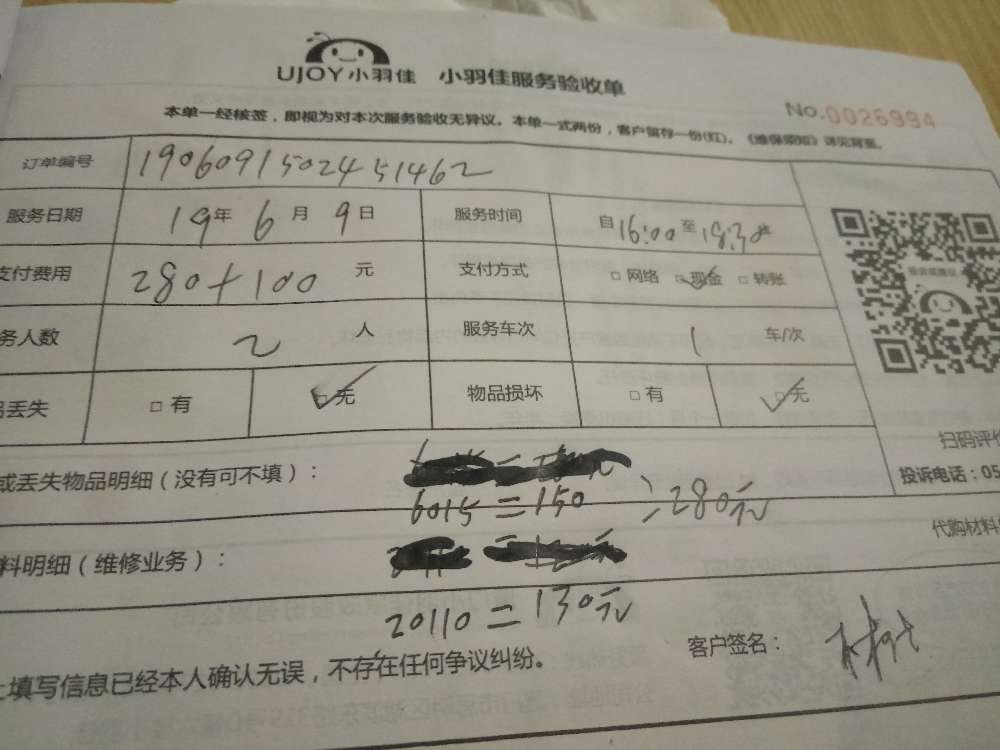 UJOY小羽佳 小羽佳服务验收单
No.0026994
本单一经核签，即视为对本次服务验收无异议。本单一式两份，客户留存一份(红)。《维保须知》详见背面。
订单编号 1906091502451462
服务日期 19年 6月 9日 服务时间 自16:00至18:30
支付费用 280+100 元 支付方式 □网络 □现金 □转账
务人数 2 人 服务车次 1 车/次
品丢失 □有 □无 物品损坏 □有 □无
扫码评价
投诉电话：05
或丢失物品明细（没有可不填）：
6015=150
280元
代购材料
料明细（维修业务）：
20110=130元
客户签名：
上填写信息已经本人确认无误，不存在任何争议纠纷。